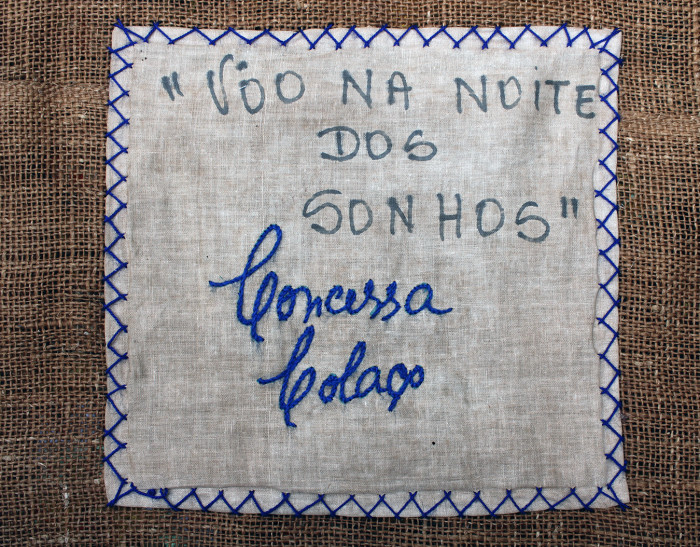 "VÔO NA NOITE
DOS
SONHOS"
Concessa
Colaço